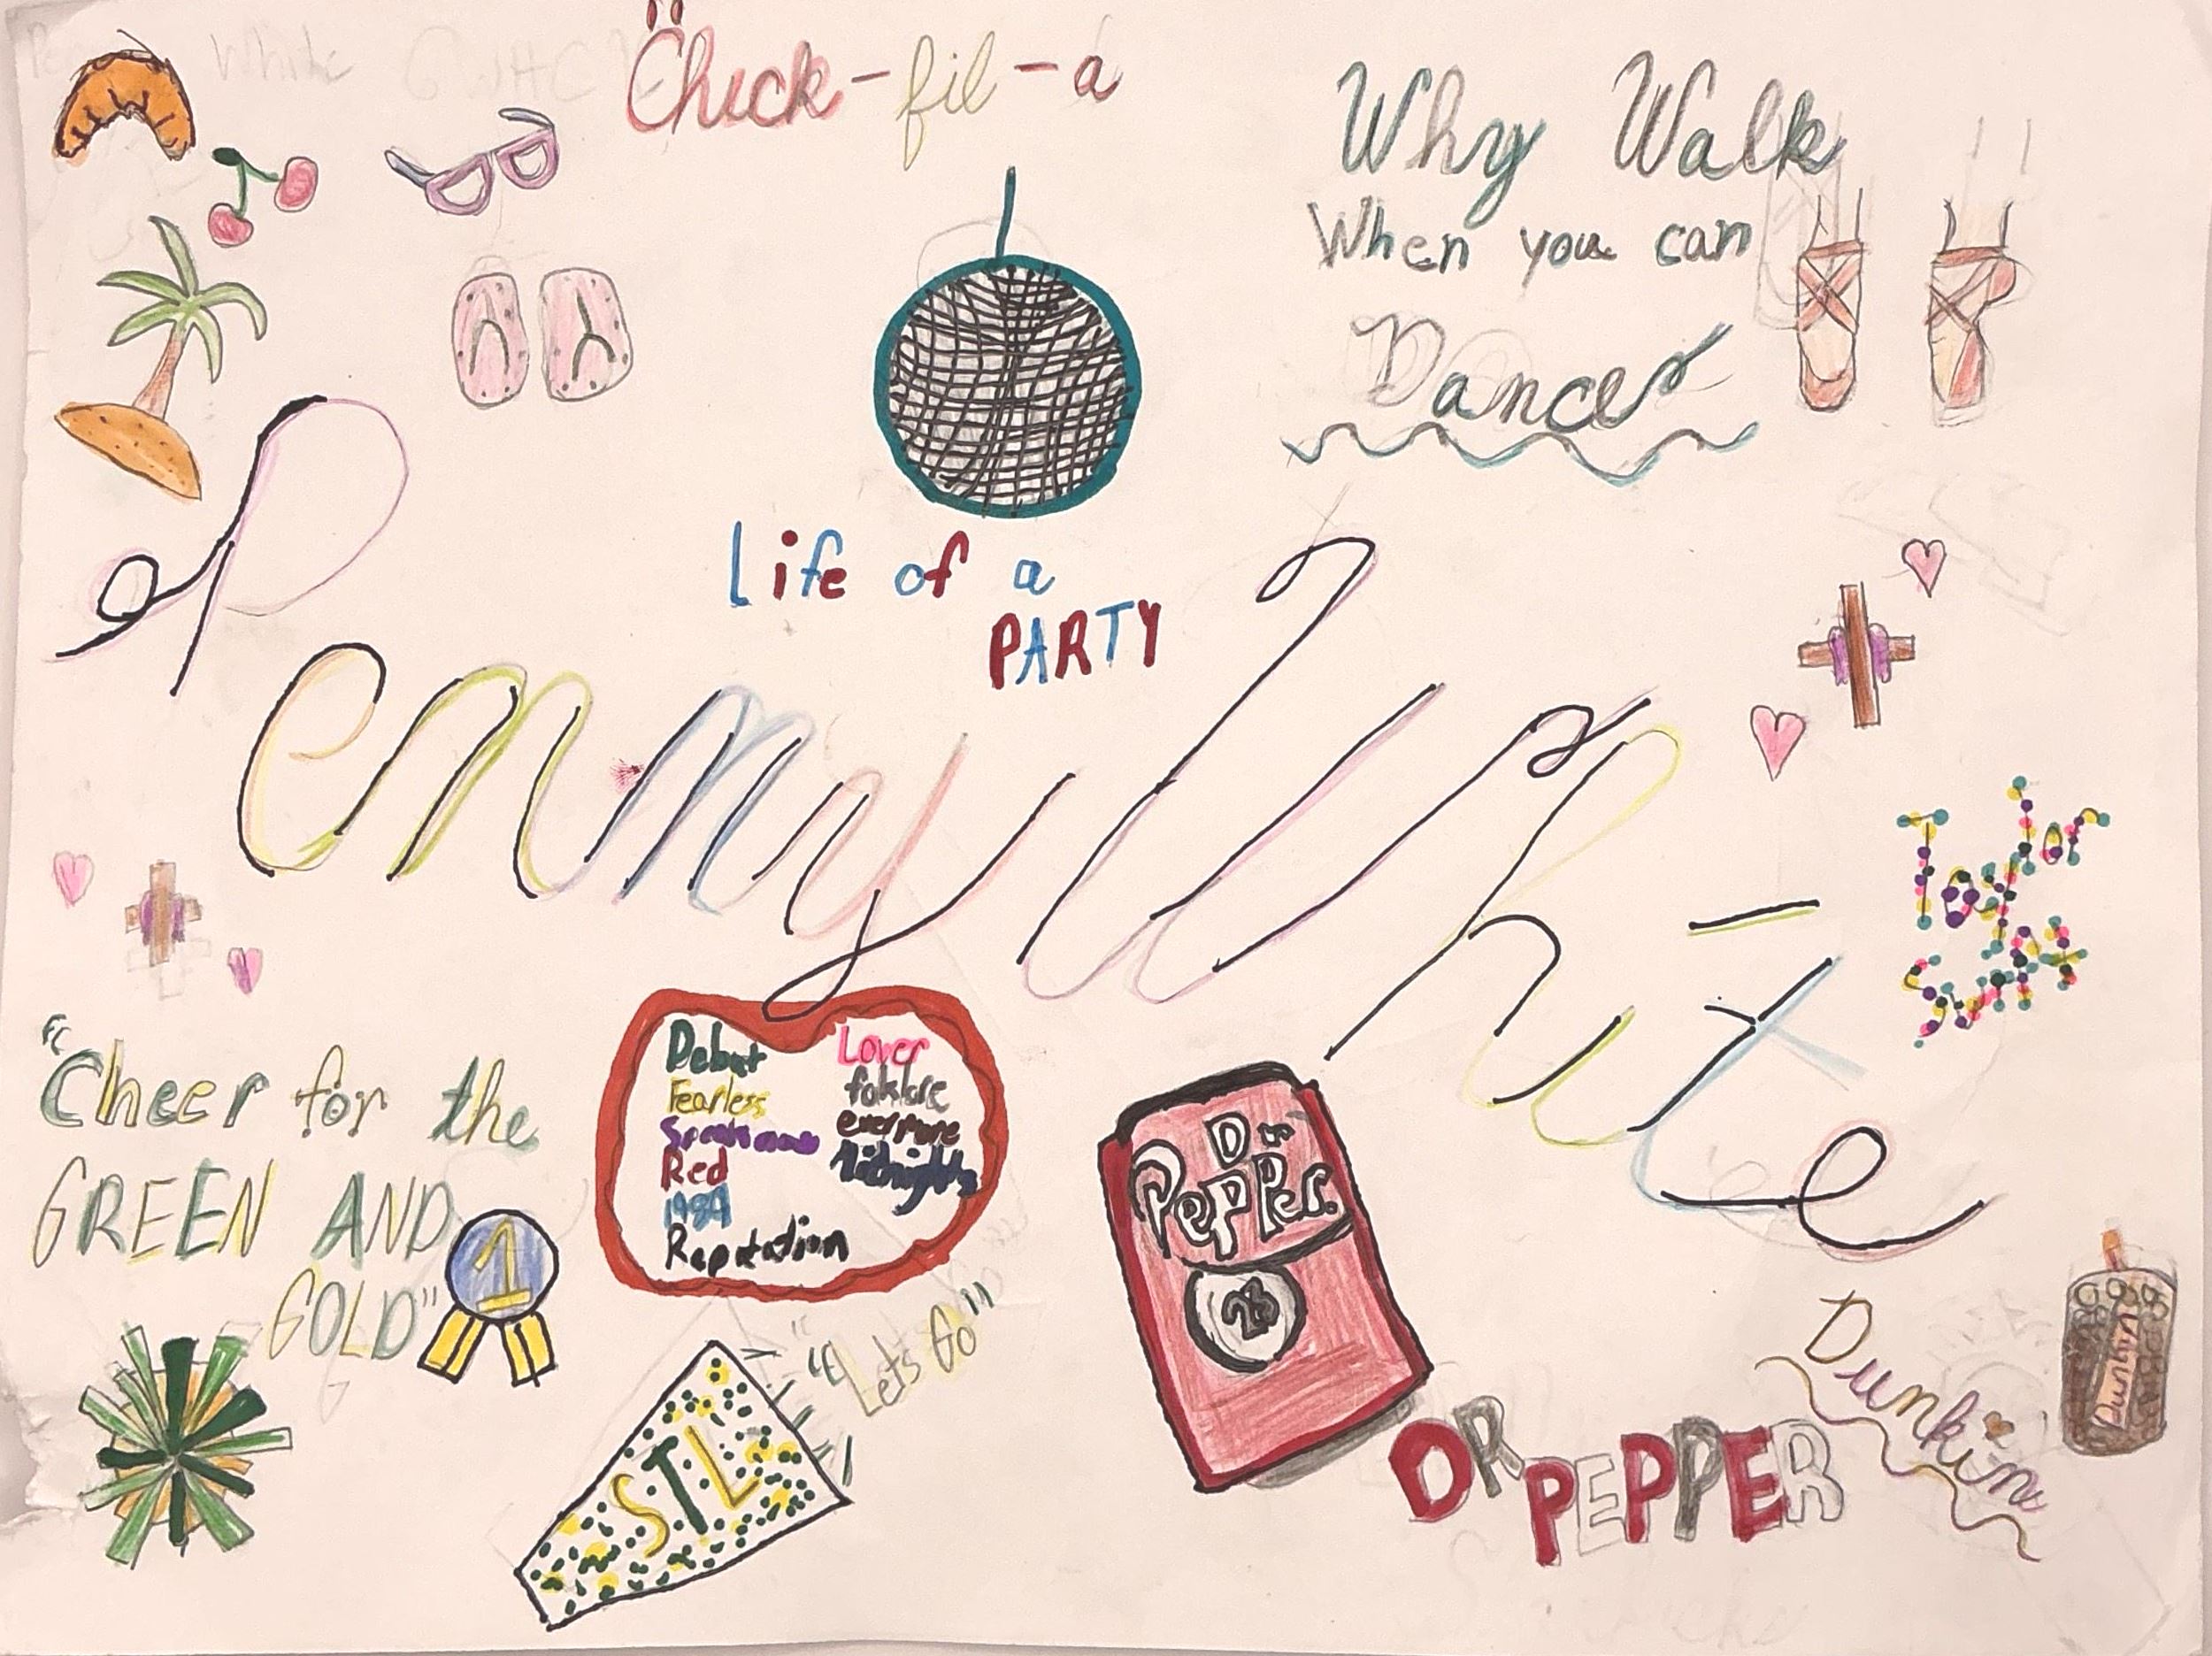 White GWHC
Chick-fil-a
Why Walk
When you can
Dance
Life of a
PARTY
Penny White
Taylor
Swift
"Cheer for the
GREEN AND
GOLD"
1
Debut
Fearless
Speak now
Red
1989
Reputation
Lover
folklore
evermore
Midnights
"Lets Go"
STL
Dr
Pepper.
23
DR
PEPPER
Dunkin
Dunkin